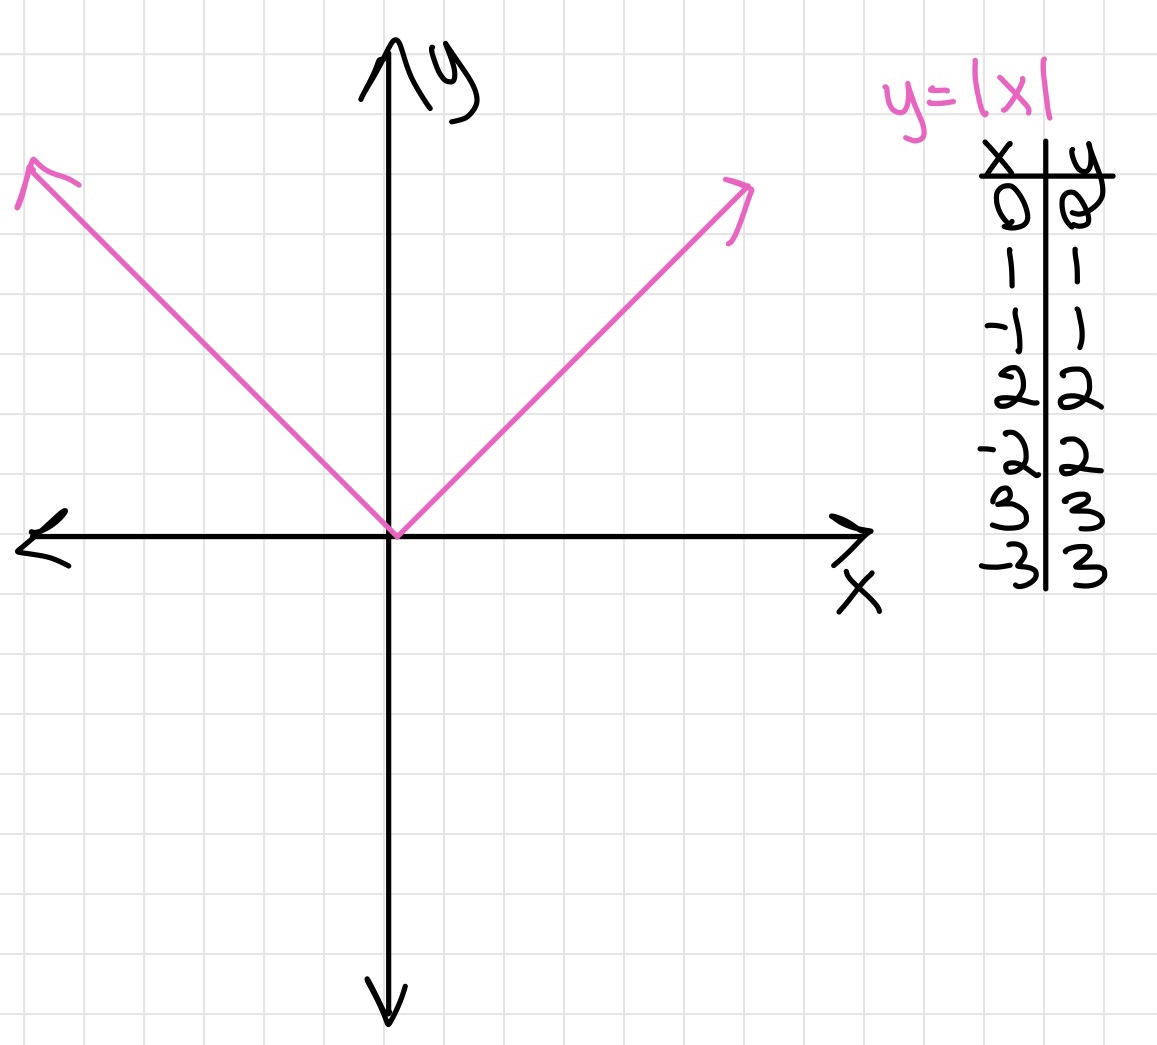 y
y=|x|
x y
0 0
1 1
-1 1
2 2
-2 2
3 3
-3 3
x